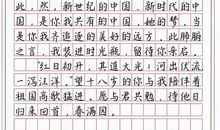 此，然，新世纪的中国，新时代的中
国，是你我共有的中国，她的梦，当
是你我齐追逐的美好的远方。此肺腑
之言，我装进时光瓶，留待你亲启。
红日初升，其道大光；河出伏流，
一泻汪洋。望十八岁的你与我陪伴着
祖国高歌猛进，愿与君共勉，待他日
归来回首，春满园。